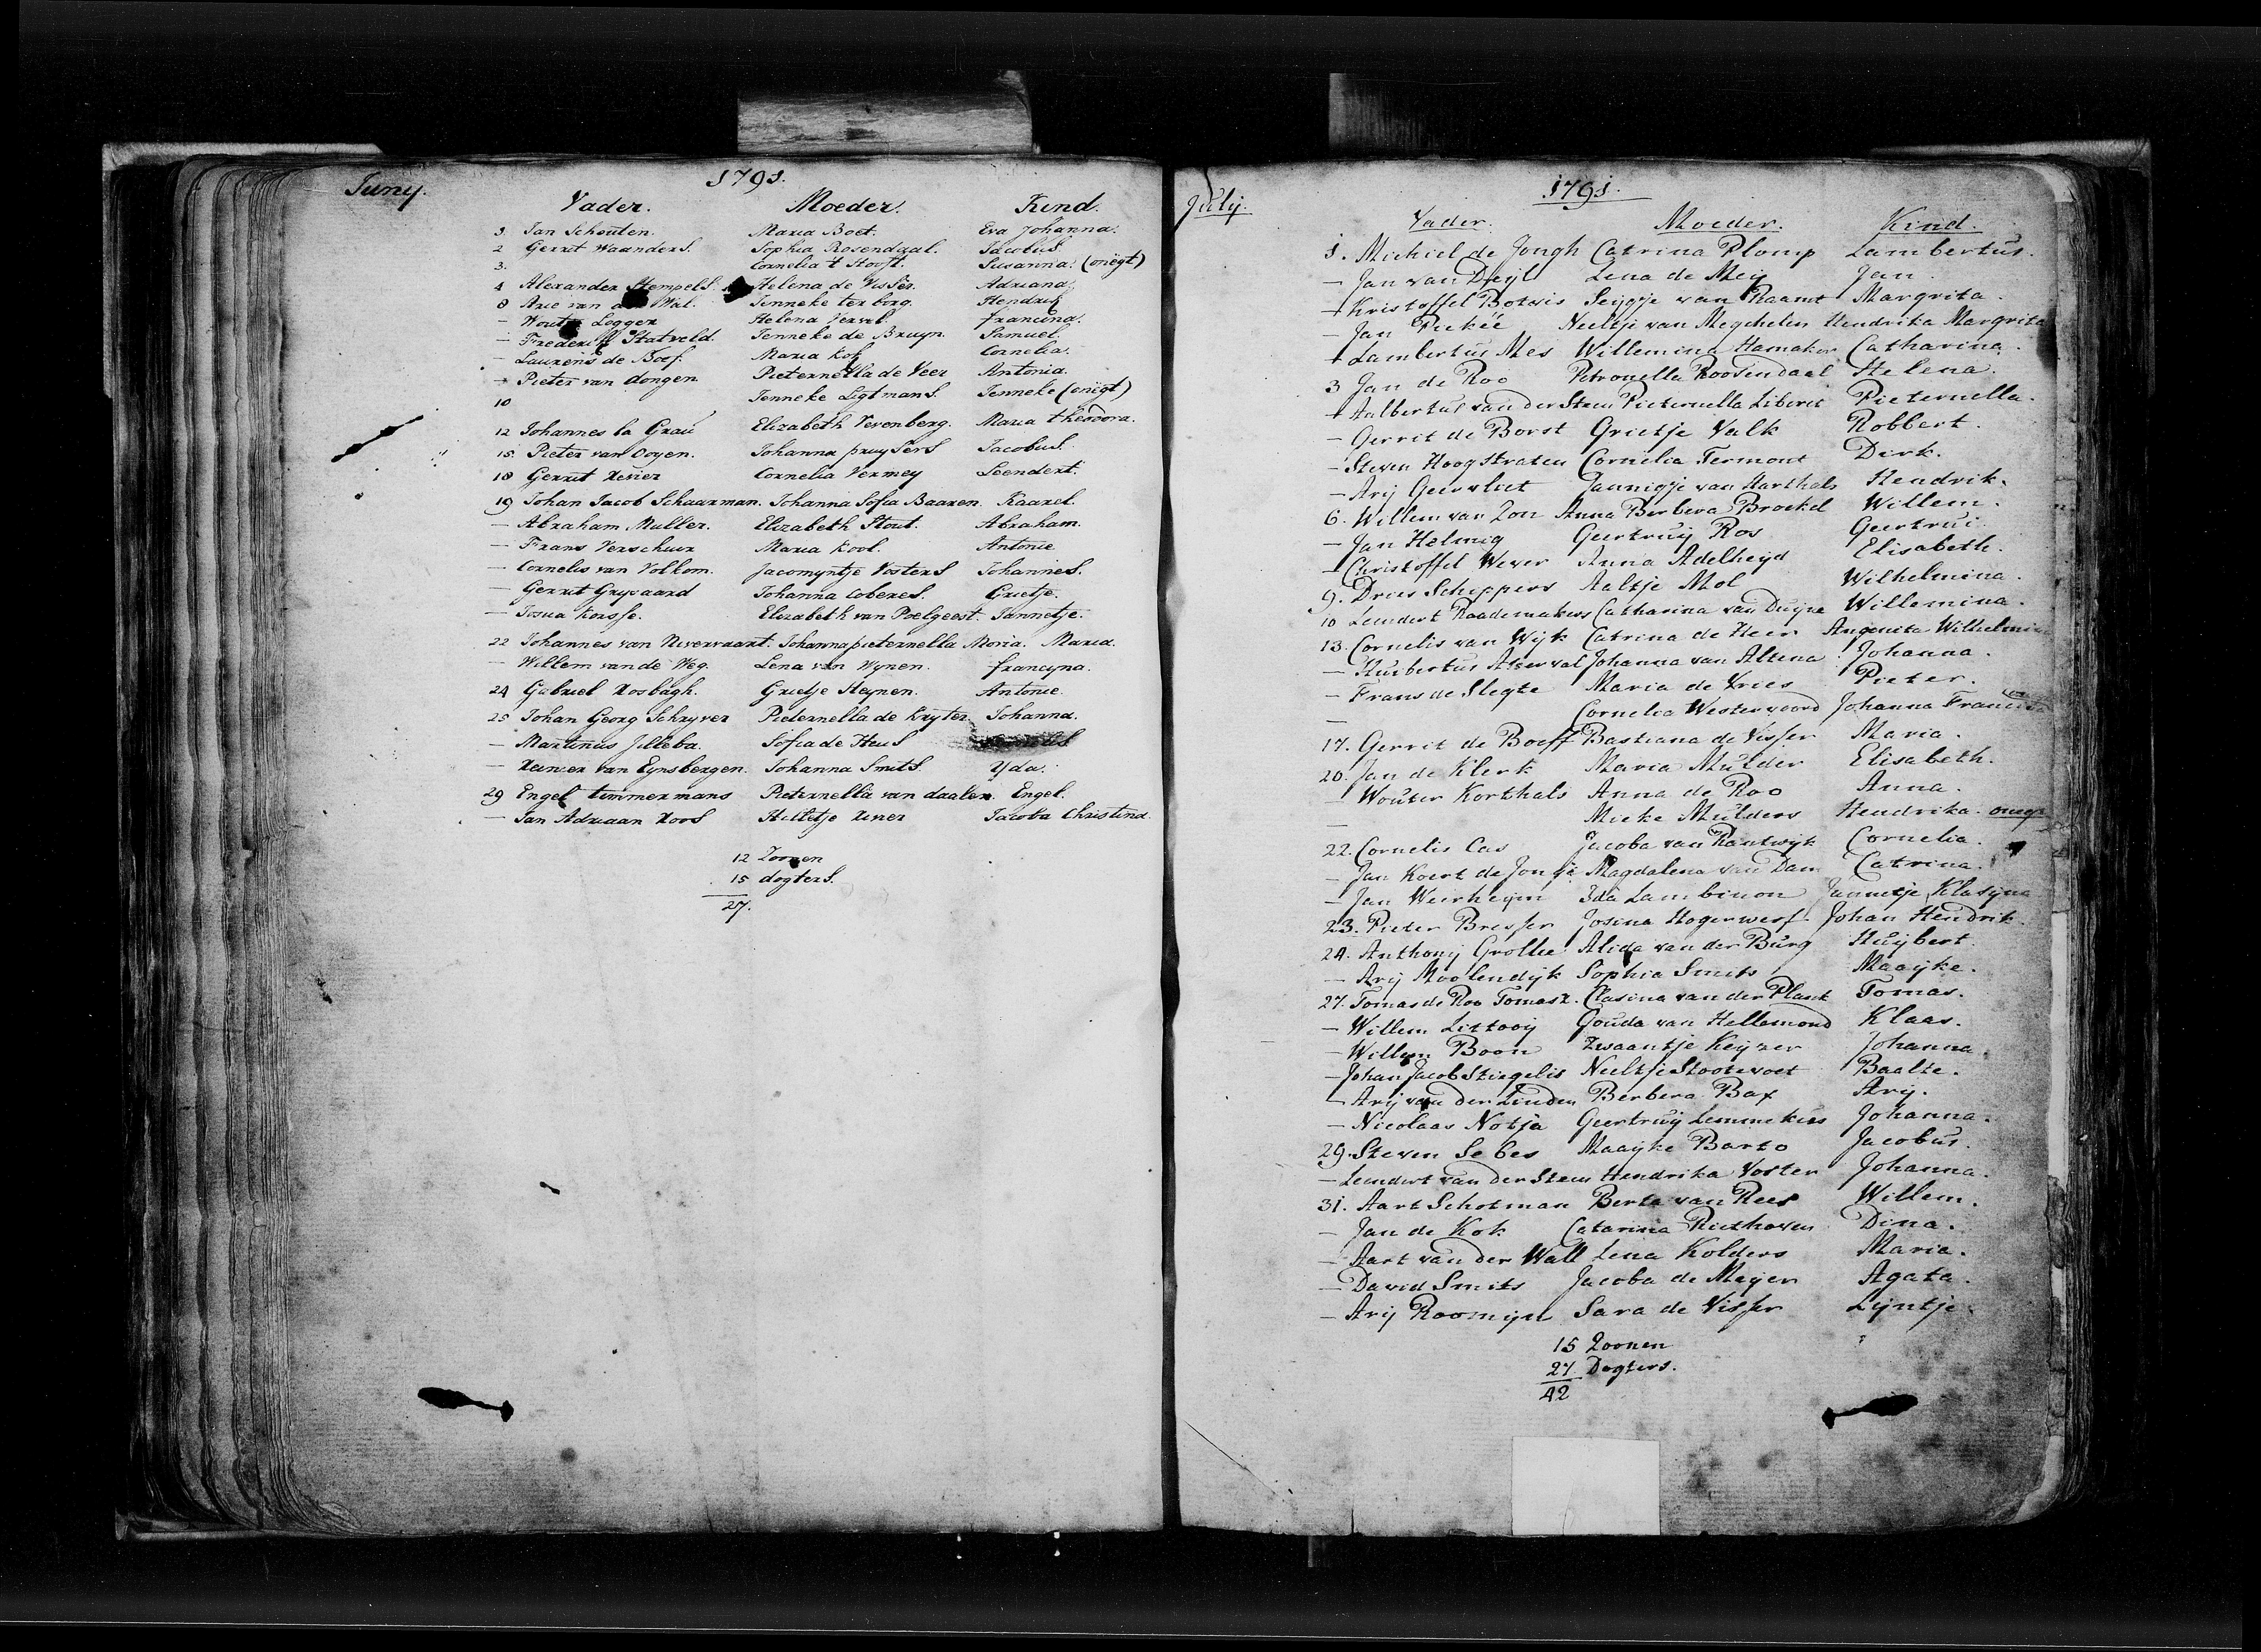 Juny. 1791.
Vader. Moeder. Kind.
3 Jan Schouten. Maria Boet. Eva Johanna.
2 Gerrit Waanders. Sophia Rosendaal. Jacobus.
3. Cornelia 't Hooft. Susanna. (onëgt)
4 Alexander Stempels. Helena de Visser. Adriana.
8 Arie van de Wal. Jenneke ter borg. Hendrik
— Wouter Legger Helena Vervel. francina.
— Frederik Statveld. Jenneke de Bruyn. Samuel.
— Laurens de Boef. Maria Kok Cornelia.
— Pieter van dongen Pieternella de Veer Antonia.
10 Jenneke Ligtmans. Jenneke (onëgt)
12 Johannes la Grau Elizabeth Verenberg. Maria theodora.
15. Pieter van Ooyen. Johanna pruysers Jacobus.
18 Gerrit Reiner Cornelia Vermey Leendert.
19 Johan Jacob Schaarman. Johanna Sofia Baaren. Kaarel.
— Abraham Muller. Elizabeth Stout. Abraham.
— Frans Verschuur Maria Kool. Antonie
— Cornelis van Volkom. Jacomyntje Vosters Johannes.
— Gerrit Grysaard Johanna Coberes. Grietje.
— Josua Korsse. Elizabeth van Poelgeest. Jannetje.
22 Johannes van Nievervaart. Johanna pieternella Moria. Maria.
— Willem van de Weg. Lena van Wynen. francyna.
24 Gabriel Rosbagh. Grietje Heynen. Antonie.
25 Johan Georg Schryver Pieternella de Kryter. Johanna.
— Martinus Jilleba. Sofia de Heus
— Reinier van Eynsbergen. Johanna Smits. Yda.
29 Engel timmermans Pieternella van daalen. Engel.
— Jan Adriaan Roos Hilletje Reiner Jacoba Christina.
12 Zoonen
15 dogters.
27.
July. 1791.
Vader. Moeder. Kind.
1. Michiel de Jongh Catrina Plomp Lambertus.
— Jan van Deyl Lena de Meij Jan.
— Kristoffel Botvis Seygje van Raamt Margrita.
— Jan Piekée Neeltje van Megchelen Hendrika Margrita
— Lambertus Mes Willemina Hamaker Catharina.
3 Jan de Roo Petronella Roosendaal Helena.
— Aalbertus van der Steen Pieternella Liberet Pieternella.
— Gerrit de Borst Grietje Valk Robbert.
— Steven Hoogstraten Cornelia Termont Dirk.
— Arij Geervliet Jannigje van Harthals Hendrik.
6. Willem van Zon Anna Berbera Broekel Willem.
— Jan Helmig Geertruij Ros Geertrui.
— Christoffel Wever Anna Adelheyd Elisabeth.
9. Dries Scheppers Aaltje Mol Wilhelmina.
10 Leendert Raademakers Catharina van Duyne Willemina.
13. Cornelis van Wijk Catrina de Heer Angenita Wilhelmin
— Huibertus Akerval Johanna van Altena Johanna.
— Frans de Slegte Maria de Vries Pieter.
— Cornelia Westervoord Johanna Francisca
17. Gerrit de Boeff Bastiana de Visser Maria.
20. Jan de Klerk Maria Mulder Elisabeth.
— Wouter Korthals Anna de Roo Anna.
— Mieke Mulders Hendrika. onegt
22. Cornelis Cas Jacoba van Rantwijk Cornelia.
— Jan Koert de Jonge Magdalena van Dam Catrina.
— Jan Weirheym Ida Lambinon Jannetje Klasyna
23. Pieter Bresser Josina Hogerwerf Johan Hendrik.
24. Anthony Grollee Alida van der Burg Huijbert.
— Arij Moolendijk Sophia Smits Maayke.
27. Tomas de Roo Tomasz. Clasina van der Plank Tomas.
— Willem Littooij Gouda van Hellemond Klaas.
— Willem Boon Zwaantje Keyzer Johanna.
— Johan Jacob Stiegelis Neeltje Stootevoet Baalte.
— Arij van der Linden Berbera Bax Arij.
— Nicolaas Notja Geertruij Lemmekers Johanna.
29. Steven Sebes Maayke Barto Jacobus.
— Leendert van der Steen Hendrika Voster Johanna.
31. Aart Schotman Berta van Rees Willem.
— Jan de Kok Catarina Riethoven Dina.
— Aart van der Wall Lena Kolders Maria.
— David Smits Jacoba de Meyer Agata.
— Arij Roomijn Sara de Visser Lijntje.
15 Zoonen
27 Dogters.
42